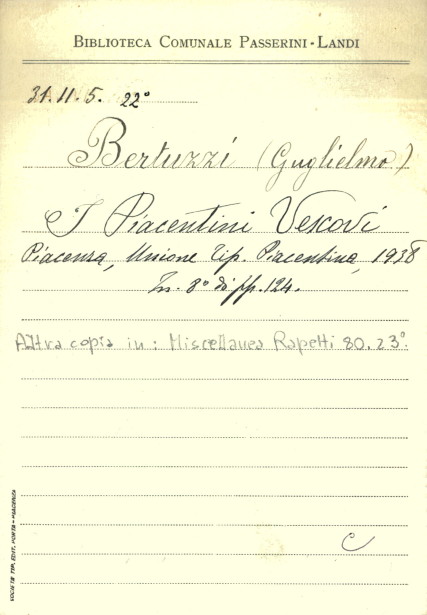 BIBLIOTECA COMUNALE PASSERINI-LANDI
31.11.5. 22°
Bertuzzi (Guglielmo)
I Piacentini Vescovi
Piacenza, Unione Tip. Piacentina, 1938
In. 8° di pp. 124.
Altra copia in: Miscellanea Rapetti 80.23°.
C
SOCIETÀ TIP. EDIT. PORTA - PIACENZA